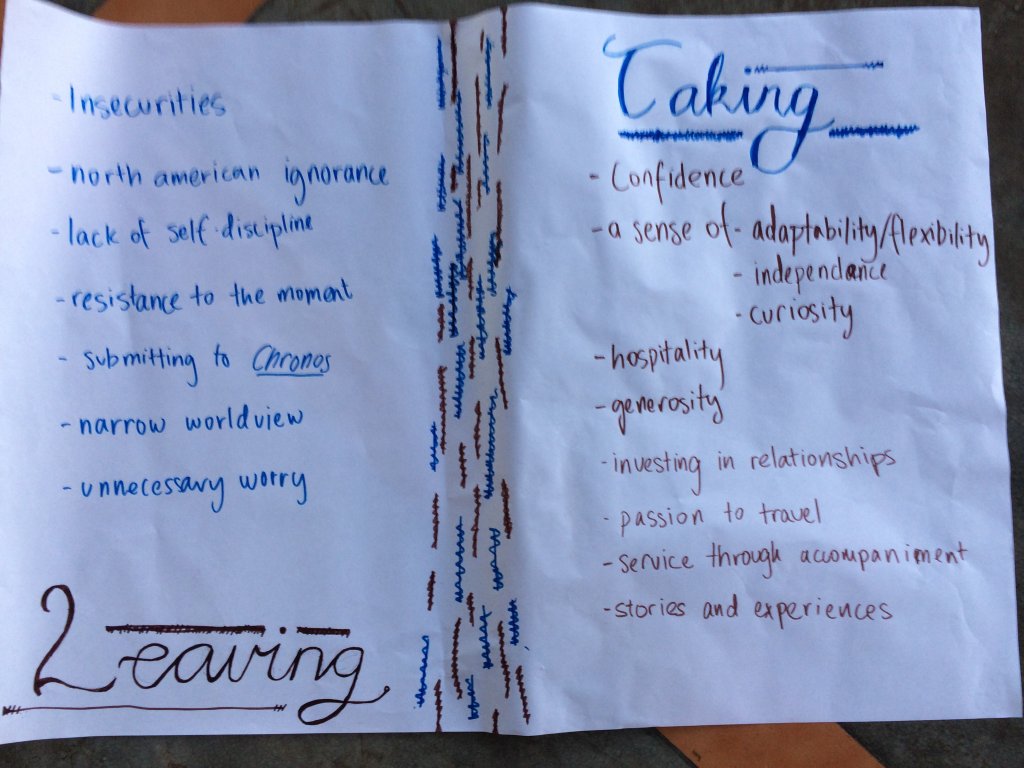 - Insecurities
- north american ignorance
- lack of self-discipline
- resistance to the moment
- submitting to Chronos
- narrow worldview
- unnecessary worry
Leaving
Taking
- Confidence
- a sense of - adaptability/flexibility
- independance
- curiosity
- hospitality
- generosity
- investing in relationships
- passion to travel
- service through accompaniment
- stories and experiences